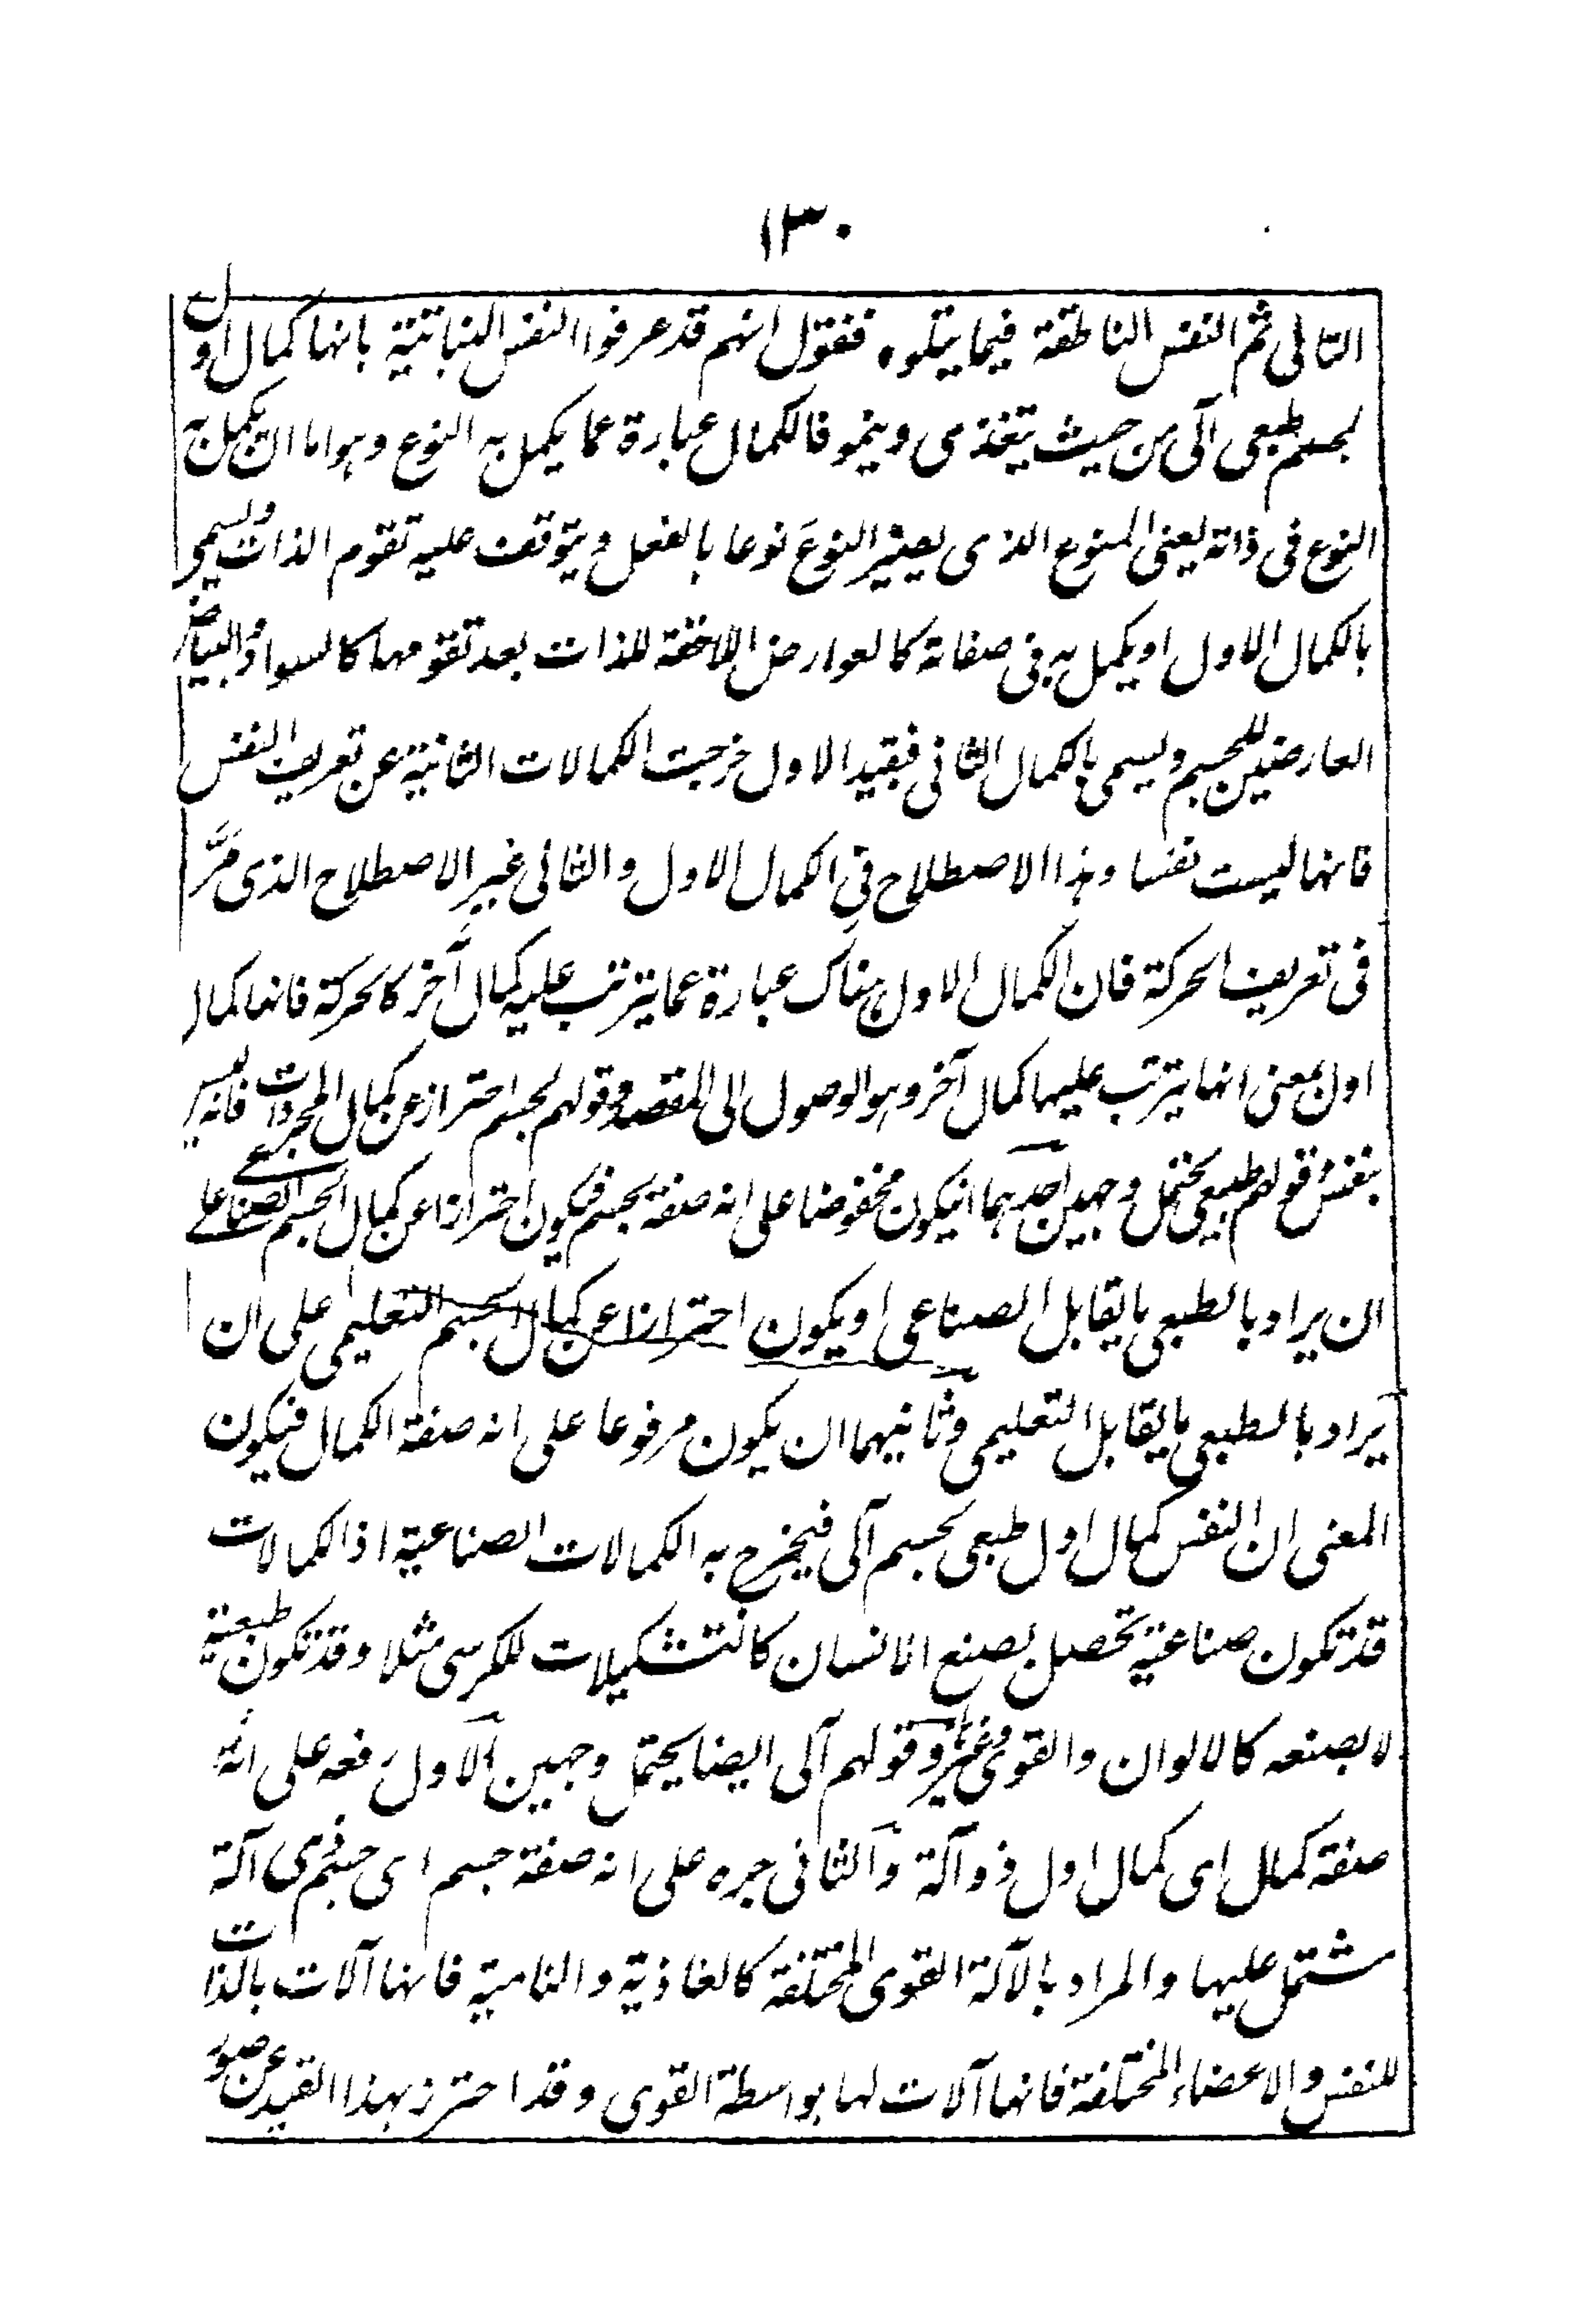 ١٣٠
التالى ثم النفس الناطقة فيما يتلوه فنقول انهم قد عرفوا النفس النباتية بانها كمال اول
لجسم طبعى آلى من حيث يتغذى وينمو فالكمال عبارة عما يكمل به النوع وهو اما ان يكمل به
النوع فى ذاته يعنى المنوع الذى يصير النوع نوعا بالفعل ويتوقف عليه تقوم الذات ويسمى
بالكمال الاول او يكمل به فى صفاته كالعوارض اللاحقة للذات بعد تقومها كالسواد والبياض
العارضين للجسم ويسمى بالكمال الثانى فبقيد الاول خرجت الكمالات الثانية عن تعريف النفس
فانها ليست نفسا وهذا الاصطلاح فى الكمال الاول والثانى غير الاصطلاح الذى مرَّ
فى تعريف الحركة فان الكمال الاول هناك عبارة عما يترتب عليه كمال آخر كالحركة فانها كمال
اول بمعنى انها يترتب عليها كمال آخر وهو الوصول الى المقصد وقولهم لجسم احتراز عن كمال المجردات فانه ليس
بنفس وقولهم طبعى يحتمل وجهين احدهما انيكون مخفوضا على انه صفة لجسم فيكون احترازا عن كمال الجسم الصناعى على
ان يراد بالطبعى ما يقابل الصناعى او يكون احترازا عن كمال الجسم التعليمى على ان
يراد بالطبعى ما يقابل التعليمى وثانيهما ان يكون مرفوعا على انه صفة الكمال فيكون
المعنى ان النفس كمال اول طبعى لجسم آلى فيخرج به الكمالات الصناعية اذ الكمالات
قد تكون صناعية تحصل بصنع الانسان كالتشكيلات للكرسى مثلا وقد تكون طبعية
لا بصنعه كالالوان والقوى وغيرها وقولهم آلى ايضا يحتمل وجهين الاول رفعه على انه
صفة كمال اى كمال اول ذو آلة والثانى جره على انه صفة جسم اى جسم ذى آلة
مشتمل عليها والمراد بالآلة القوى المختلفة كالغاذية والنامية فانها آلات بالذات
للنفس والاعضاء المختلفة فانها آلات لها بواسطة القوى وقد احترز بهذا القيد عن صور